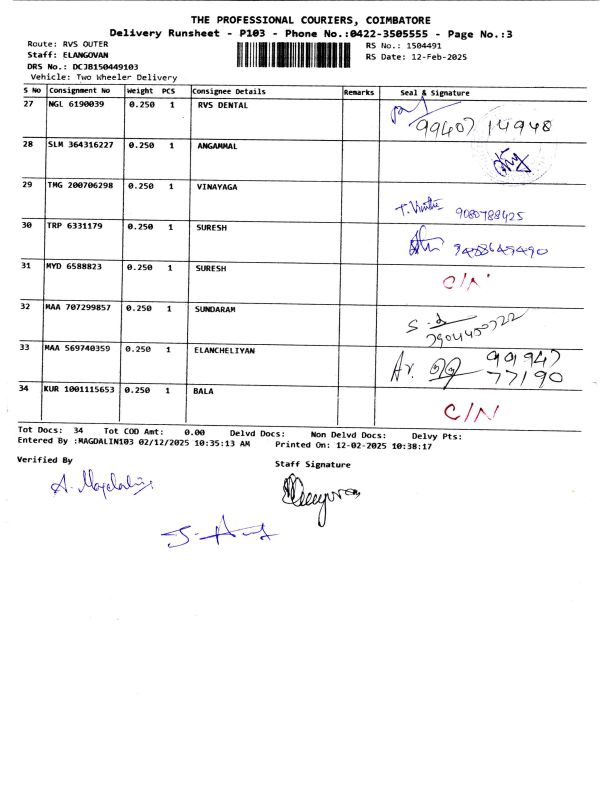 THE PROFESSIONAL COURIERS, COIMBATORE
Delivery Runsheet - P103 - Phone No.:0422-3505555 - Page No.:3
Route: RVS OUTER RS No.: 1504491
Staff: ELANGOVAN RS Date: 12-Feb-2025
DRS No.: DCJB150449103
Vehicle: Two Wheeler Delivery
S No Consignment No Weight PCS Consignee Details Remarks Seal & Signature
27 NGL 6190039 0.250 1 RVS DENTAL
99407 14948
28 SLM 364316227 0.250 1 ANGAMMAL
29 TMG 200706298 0.250 1 VINAYAGA
9080788425
30 TRP 6331179 0.250 1 SURESH
31 MYD 6588823 0.250 1 SURESH
C/N
32 MAA 707299857 0.250 1 SUNDARAM
33 MAA 569740359 0.250 1 ELANCHELIYAN
991947
77190
34 KUR 1001115653 0.250 1 BALA
C/N
Tot Docs: 34 Tot COD Amt: 0.00 Delvd Docs: Non Delvd Docs: Delvy Pts:
Entered By :MAGDALIN103 02/12/2025 10:35:13 AM Printed On: 12-02-2025 10:38:17
Verified By Staff Signature